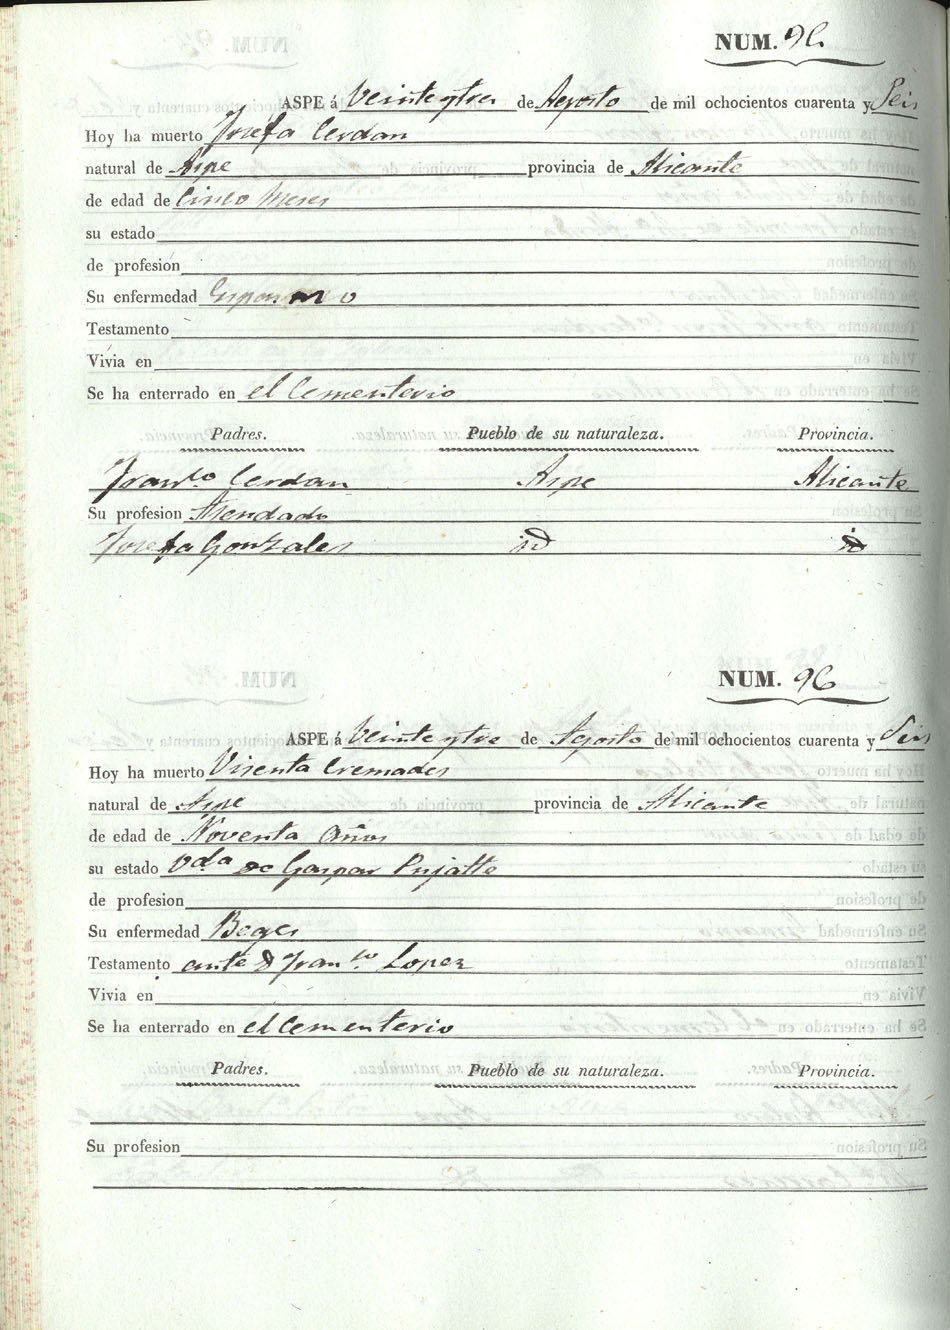 NUM. 96
ASPE á Veinte ytres de Agosto de mil ochocientos cuarenta y Seis
Hoy ha muerto Josefa Cerdan
natural de Aspe provincia de Alicante
de edad de Cinco Meses
su estado
de profesión
Su enfermedad
Testamento
Vivia en
Se ha enterrado en el Cementerio
Padres. Pueblo de su naturaleza. Provincia.
Franco Cerdan Aspe Alicante
Su profesion
Josefa Gonzales id id
NUM. 96
ASPE á Veinte ytres de Agosto de mil ochocientos cuarenta y Seis
Hoy ha muerto Visenta Cremades
natural de Aspe provincia de Alicante
de edad de Noventa años
su estado Vda de Gaspar Pujalte
de profesion
Su enfermedad Beges
Testamento ante D Franco Lopez
Vivia en
Se ha enterrado en el Cementerio
Padres. Pueblo de su naturaleza. Provincia.
Su profesion